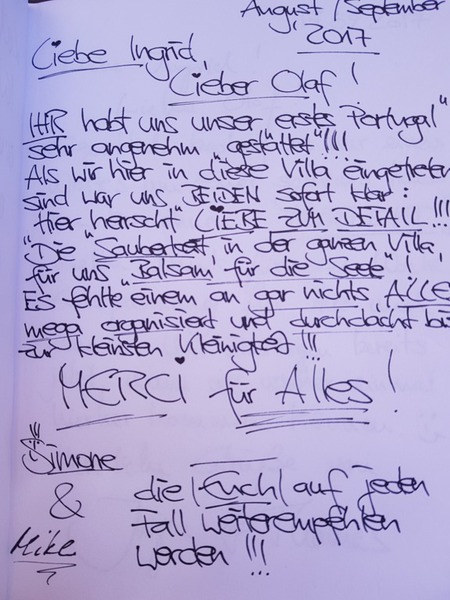 August/September
2017
Liebe Ingrid,
Lieber Olaf!
IHR habt uns unser erstes "Portugal"
sehr angenehm "gestaltet"!!!
Als wir hier in diese Villa eingetreten
sind war uns BEIDEN sofort klar:
"Hier "herrscht" LIEBE ZUM DETAIL!!!
Die "Sauberkeit, in der ganzen Villa,
für uns "Balsam für die Seele"!
ES fehlte einem an gar nichts ALLE
mega organisiert und durchdacht bis
zur kleinsten Kleinigkeit!!!
MERCI für Alles!
Simone
&
Mike
die |Euch| auf jeden
Fall weiterempfehlen
werden!!!